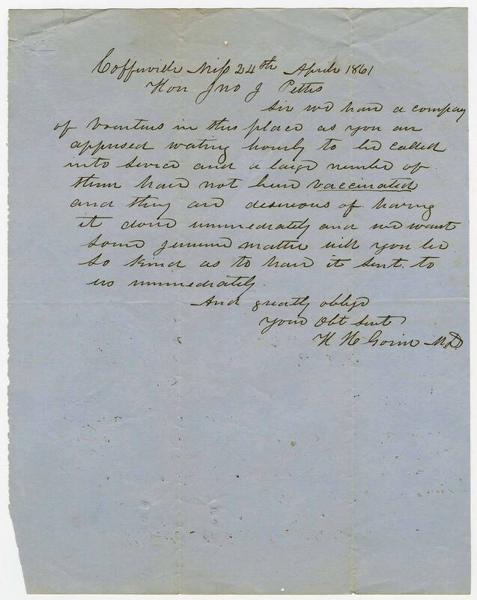 Coffeeville Miss 24th April 1861
Hon Jno J Pettus
Sir we have a company
of volunteers in this place as you are
apprised wating hourly to be called
into service and a large number of
them have not been vaccinated
and they are desireous of having
it done immediately and we want
some genuine matter will you be
so kind as to have it sent to
us immediately.
And greatly oblige
Your Obt Servt
MD